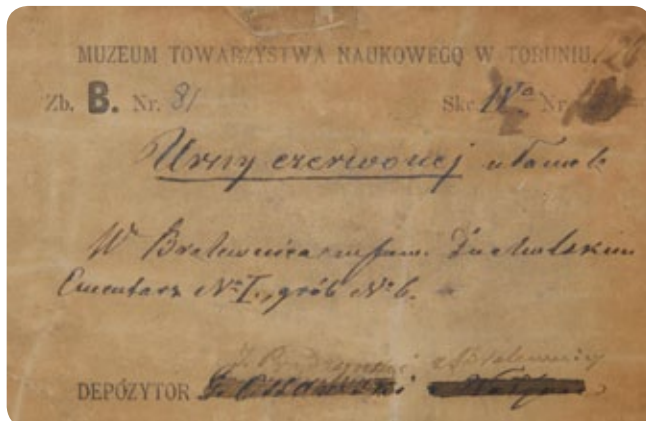 MUZEUM TOWARZYSTWA NAUKOWEGO W TORUNIU.
Zb. B. Nr. 81
Skr. IVa Nr.
Urny czerwonej ułamek
W Bralewnica pow. Tucholskim
Cmentarz No I., grób No 6.
DEPÓZYTOR G. Ossowski